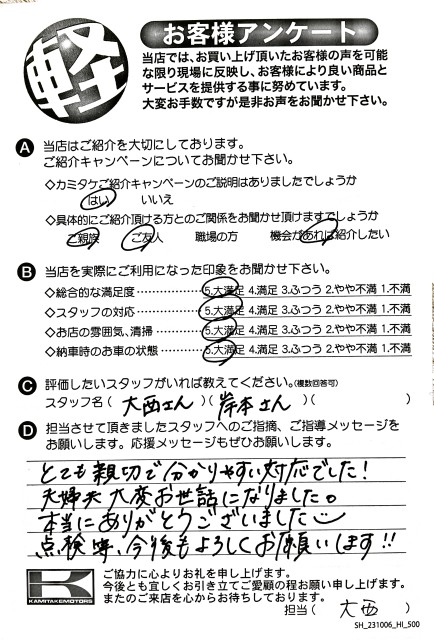 軽
お客様アンケート
当店では、お買い上げ頂いたお客様の声を可能
な限り現場に反映し、お客様により良い商品と
サービスを提供する事に努めています。
大変お手数ですが是非お声をお聞かせ下さい。
A 当店はご紹介を大切にしております。
ご紹介キャンペーンについてお聞かせ下さい。
◇カミタケご紹介キャンペーンのご説明はありましたでしょうか
はい いいえ
◇具体的にご紹介頂ける方とのご関係をお聞かせ頂けますでしょうか
ご親族 ご友人 職場の方 機会があれば紹介したい
B 当店を実際にご利用になった印象をお聞かせ下さい。
◇総合的な満足度………… 5.大満足 4.満足 3.ふつう 2.やや不満 1.不満
◇スタッフの対応………… 5.大満足 4.満足 3.ふつう 2.やや不満 1.不満
◇お店の雰囲気、清掃…… 5.大満足 4.満足 3.ふつう 2.やや不満 1.不満
◇納車時のお車の状態…… 5.大満足 4.満足 3.ふつう 2.やや不満 1.不満
C 評価したいスタッフがいれば教えてください。(複数回答可)
スタッフ名( 大西さん )( 岸本さん )( )
D 担当させて頂きましたスタッフへのご指摘、ご指導メッセージを
お願いします。応援メッセージもぜひお願いします。
とても親切で分かりやすい対応でした!
夫婦共大変お世話になりました。
本当にありがとうございました
点検等、今後もよろしくお願いします!!
KAMITAKEMOTORS
ご協力に心よりお礼を申し上げます。
今後とも宜しくお引き立てご愛顧の程お願い申し上げます。
またのご来店を心からお待ちしております。
担当( 大西 )
SH_231006_HI_500